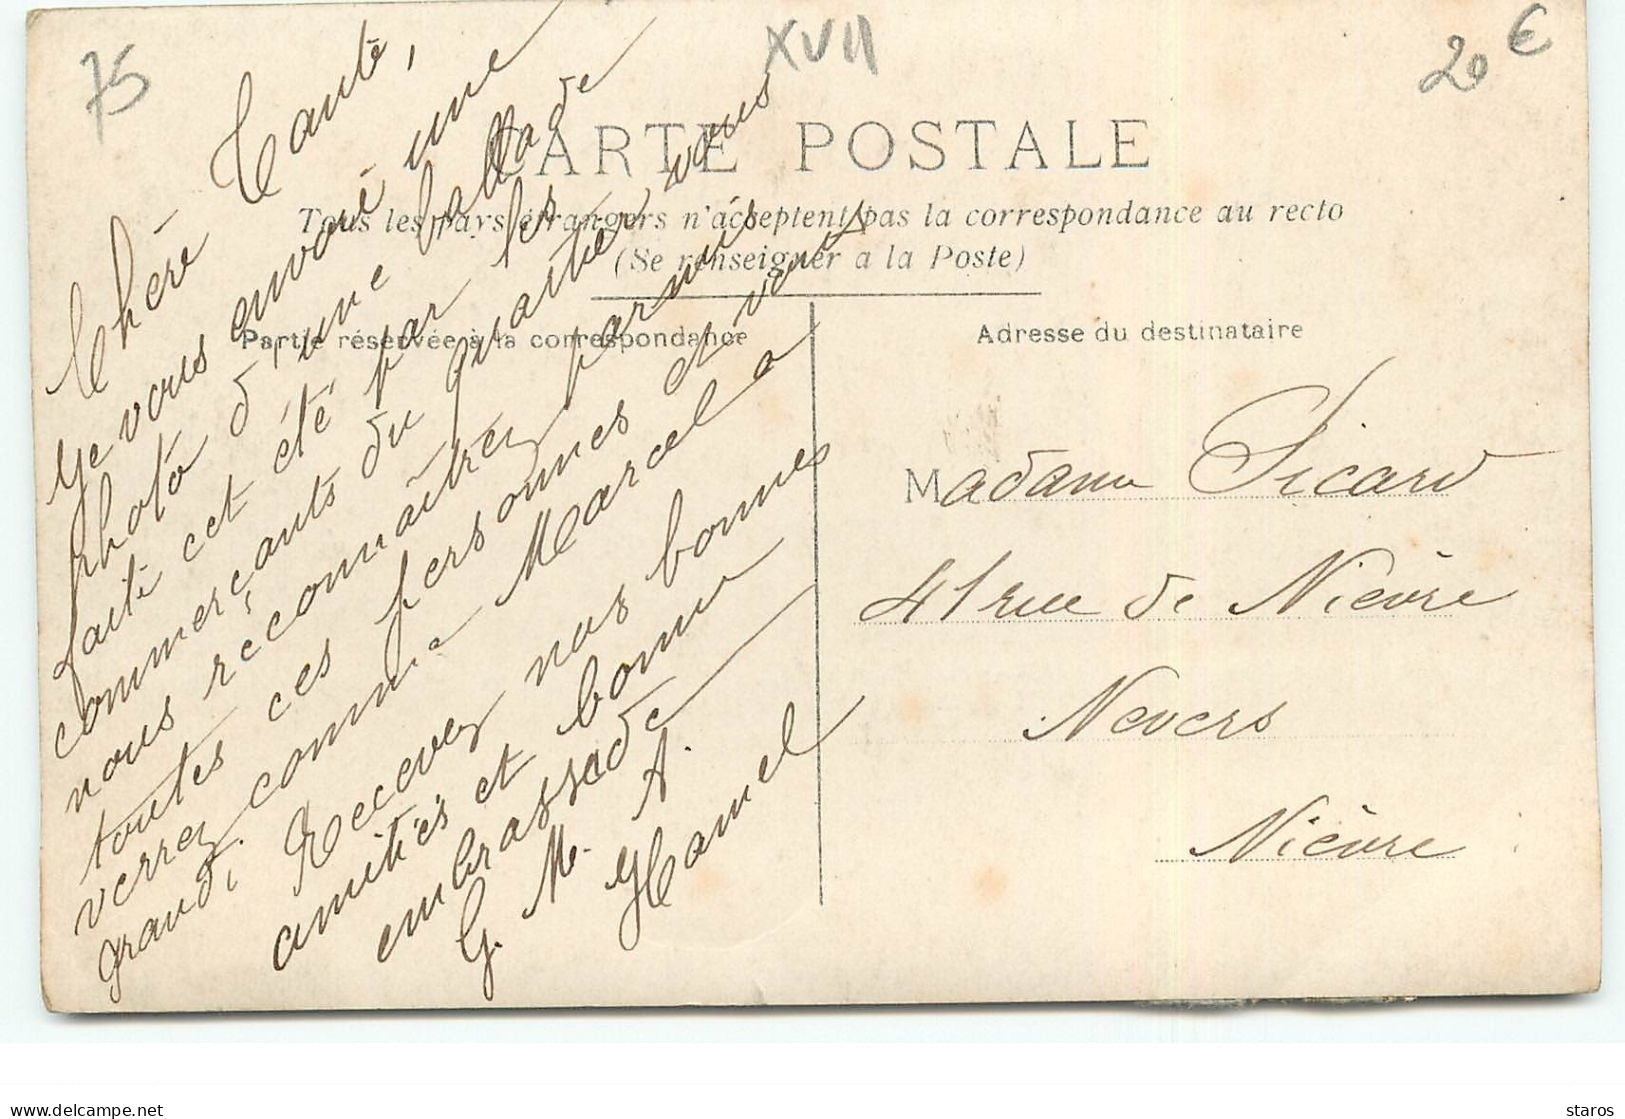 75
XVII
20 €
CARTE POSTALE
Tous les pays étrangers n'acceptent pas la correspondance au recto
(Se renseigner a la Poste)
Partie réservée à la correspondance
Chère Tante,
Je vous envoie une
photo d'une ballade
faite cet été par les
commerçants du quartier vous
nous reconnaîtrez parmis
toutes ces personnes et vous
verrez comme Marcel a
grandi, Recevez nos bonnes
amitiés et bonne
embrassade
G. M. A.
Hamel
Adresse du destinataire
Madame Sicard
41 rue de Nièvre
Nevers
Nièvre
delcampe.net
staros